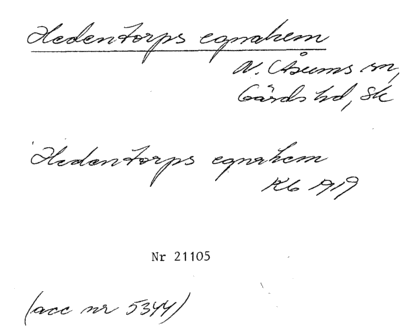 Hedentorps egnahem
N. Åsums sn,
Gärds hd, Sk
Hedentorps egnahem
Kb 1919
Nr 21105
(acc nr 5344)